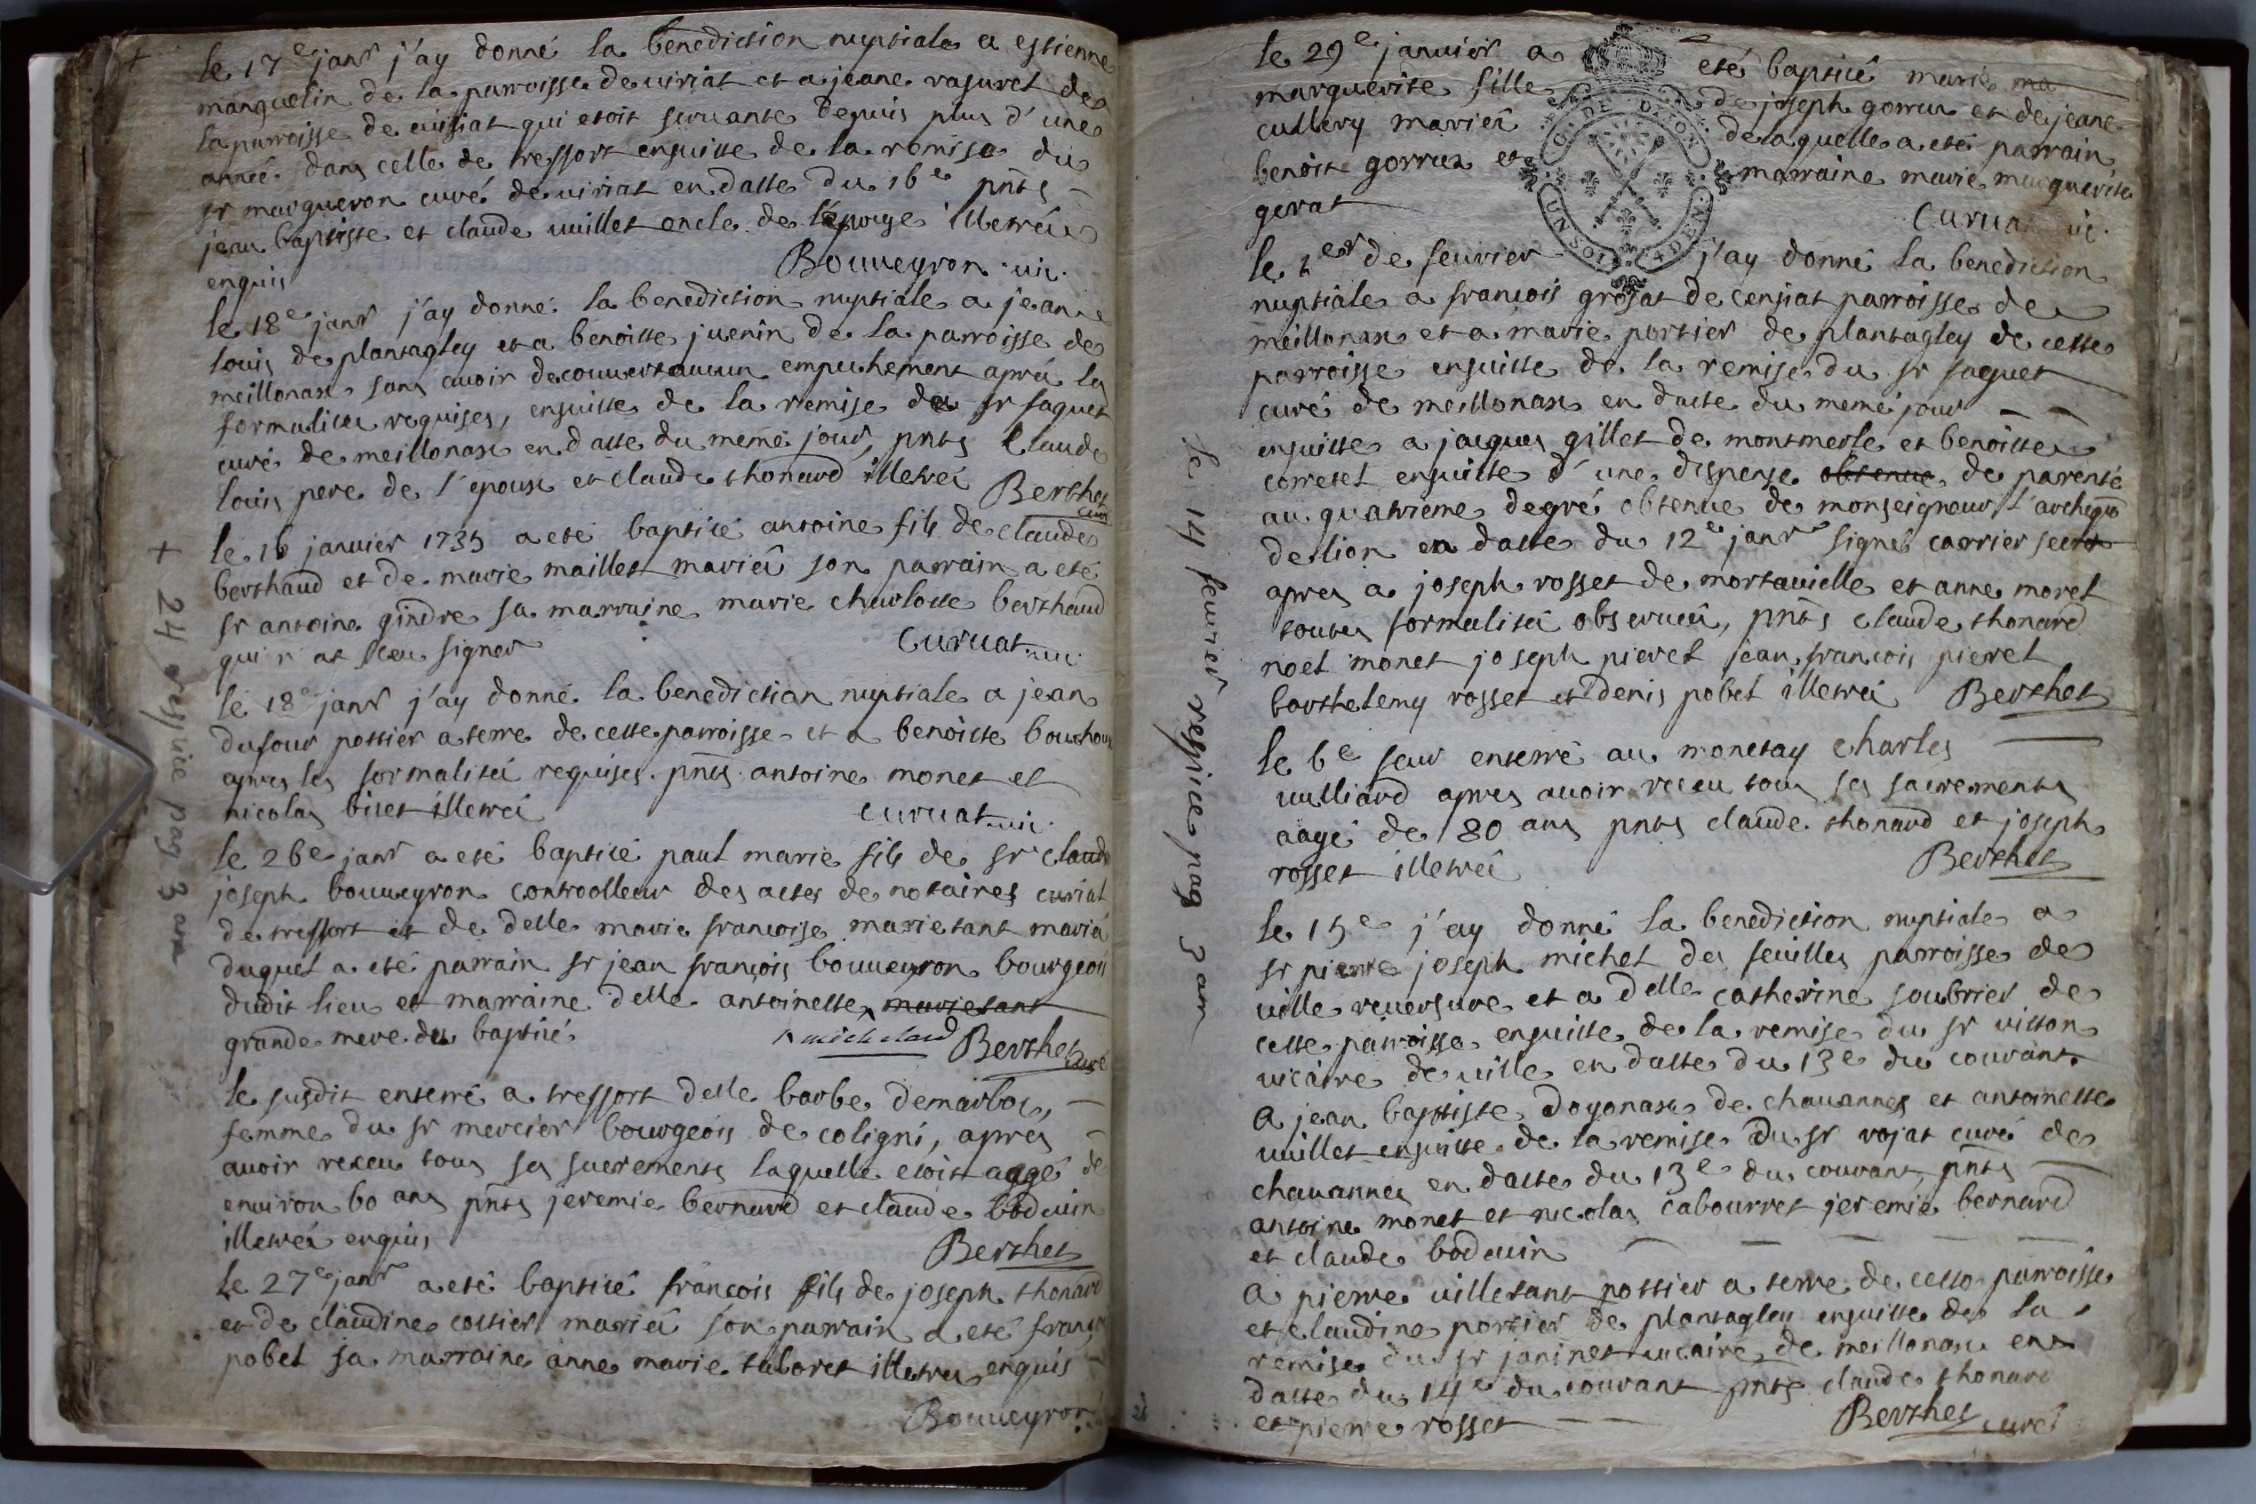 le 17e janr j'ay donné la benediction nuptiale a estienne
manguelin de la parroisse de viriat et a jeane rasuret de
la parroisse de cuisiat qui etoit servante depuis plus d'une
année dans celle de tressort ensuitte de la remise du
sr margueron curé de viriat en datte du 16e pnts
jean baptiste et claude vuillet oncle de l'epouse illetrés
enquis
Bouveyron vic.
le 18e janr j'ay donné la benediction nuptiale a jean
louis de plantagley et a benoitte juenin de la parroisse de
meillonax sans avoir decouvert aucun empechement aprés les
formalités requises, ensuitte de la remise du sr faguet
curé de meillonax en datte du meme jour, pnts Claude
louis pere de l'epoux et claude thonard illetrés
Berthet
curé
le 16 janvier 1735 a eté baptisé antoine fils de claude
berthaud et de marie maillet mariés son parrain a eté
sr antoine gindre sa marraine marie charlotte berthaud
qui n'at sceu signer
Curvat vic
le 18e janr j'ay donné la benediction nuptiale a jean
dufour pottier a terre de cette parroisse et a benoitte bouchoux
apres les formalités requises pnts antoine monet et
nicolas bizet illetrés
curvat vic.
le 26e janr a eté baptisé paul marie fils de sr claude
joseph bouveyron controolleur des actes de notaires curial
de tressort et de delle marie francoise marietant mariés
duquel a eté parrain sr jean françois bouveyron bourgeois
dudit lieu et marraine delle antoinette marietant
grande mere du baptisé
michaud Berthet
curé
le susdit enterré a tressort delle barbe demarbos,
femme du sr mercier bourgeois de coligni, aprés
avoir receu tous ses sacrements laquelle etoit aagé de
environ 60 ans pnts jeremie bernard et claude boduin
illetrés enquis
Berthet
le 27e janr a eté baptisé françois fils de joseph thonard
et de claudine cottier mariés son parrain a eté françois
pobel sa marraine anne marie taboret illetrés enquis
Bouveyron
24 respice pag 3 an
le 29e janvier a eté baptisé marie ma
marguerite fille de joseph gorraz et de jeane
cullery mariés de laquelle a eté parrain
benoit gorraz et marraine marie marguerite
gerat
Curvat vic.
G. DE DIJON
UN SOL 4 DEN.
le 1er de fevrier j'ay donné la benediction
nuptiale a francois grosat de censiat parroisse de
meillonax et a marie portier de plantagley de cette
parroisse ensuitte de la remise du sr faguet
curé de meillonax en datte du meme jour
ensuitte a jacques gillet de montmerle et benoitte
corretel ensuitte d'une dispense obtenue de parenté
au quatrieme degré obtenue de monseigneur l'archeque
de lion en datte du 12e janr signé carrier secret
apres a joseph rosset de mortavielle et anne morel
toutes formalités observées, pnts claude thonard
noel monet joseph pieret jean francois pieret
barthelemy rosset et denis pobel illetrés Berthet
le 6e fevr enterré au monetay Charles
vulliard apres avoir receu tous ses sacrements
aagé de 80 ans pnts claude thonard et joseph
rosset illetrés
Berthet
le 15e j'ay donné la benediction nuptiale a
sr pierre joseph michel des feuilles parroisse de
ville reversure et a delle catherine soubrier de
cette parroisse ensuitte de la remise du sr vitton
vicaire de ville en datte du 13e du courant
a jean baptiste doyonax de chavannes et antoinette
vuillet ensuitte de la remise du sr rojat curé de
chavannes en datte du 13e du courant, pnts
antoine monet et nicolas cabourret jeremie bernard
et claude boduin
a pierre villetant pottier a terre de cette parroisse
et claudine portier de plantagley ensuitte de la
remise du sr janinet vicaire de meillonax en
datte du 14e du courant pnts claude thonard
et pierre rosset
Berthet curé
le 14 fevrier respice pag 3 an